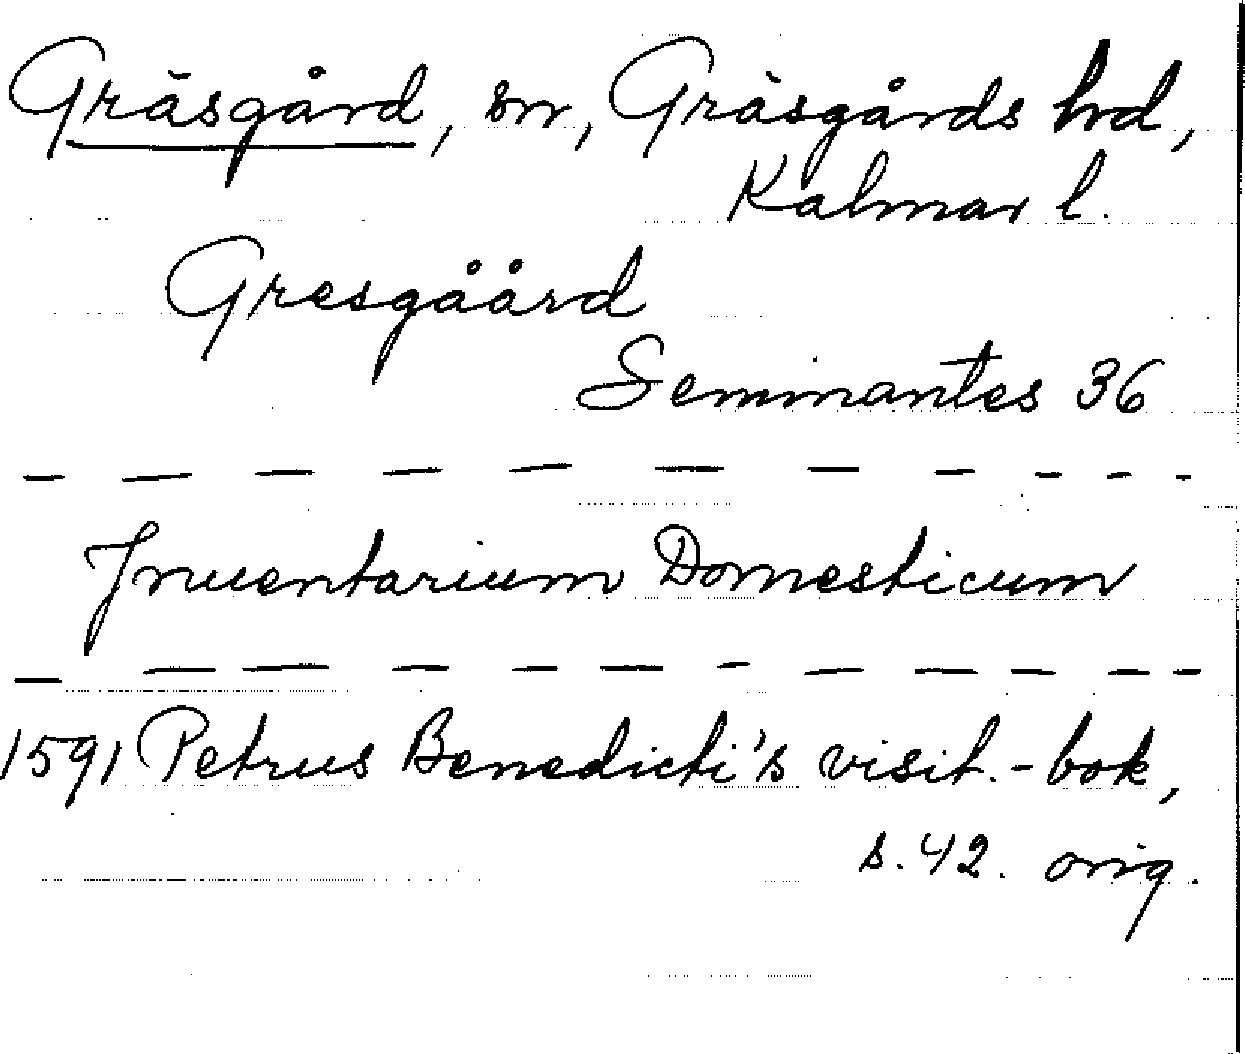 Gräsgård, sn, Gräsgårds hd,
Kalmar l.
Gresgåård
Seminantes 36
— — — — — — — — - - -
Inuentarium Domesticum
— — — — — — - — — — — -
1591 Petrus Benedicti's visit.-bok,
s. 42. orig.